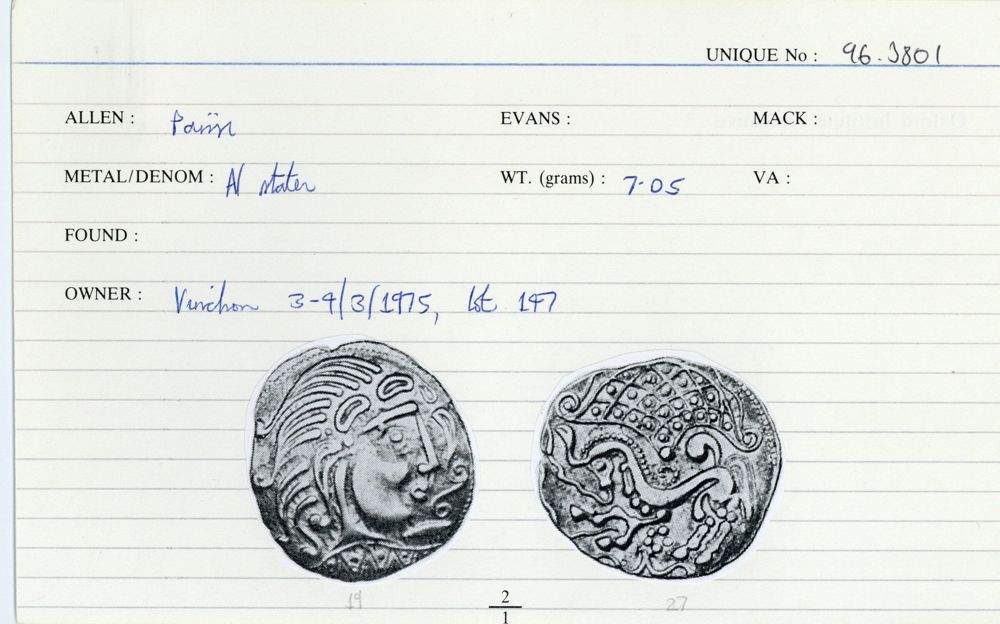 UNIQUE No : 96.3801
ALLEN : Parisii EVANS : MACK :
METAL/DENOM : AV stater WT. (grams) : 7.05 VA :
FOUND :
OWNER : Vinchon 3-4/3/1975, lot 147
19 2/1 27